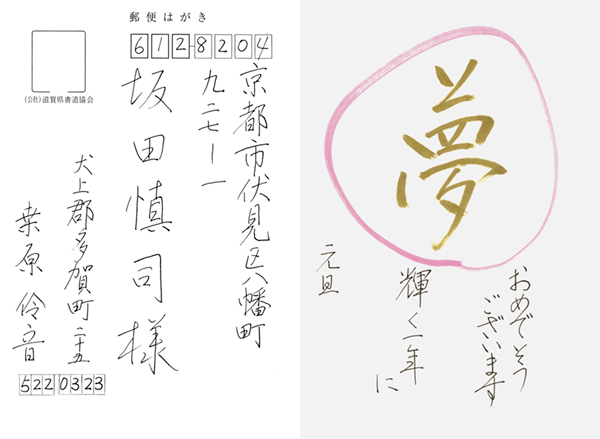 郵便はがき
612-8204
(公社)滋賀県書道協会
京都市伏見区八幡町
九二七ー一
坂田慎司様
犬上郡多賀町二十五
桑原伶音
5220323
夢
おめでとう
ございます
輝く一年に
元旦